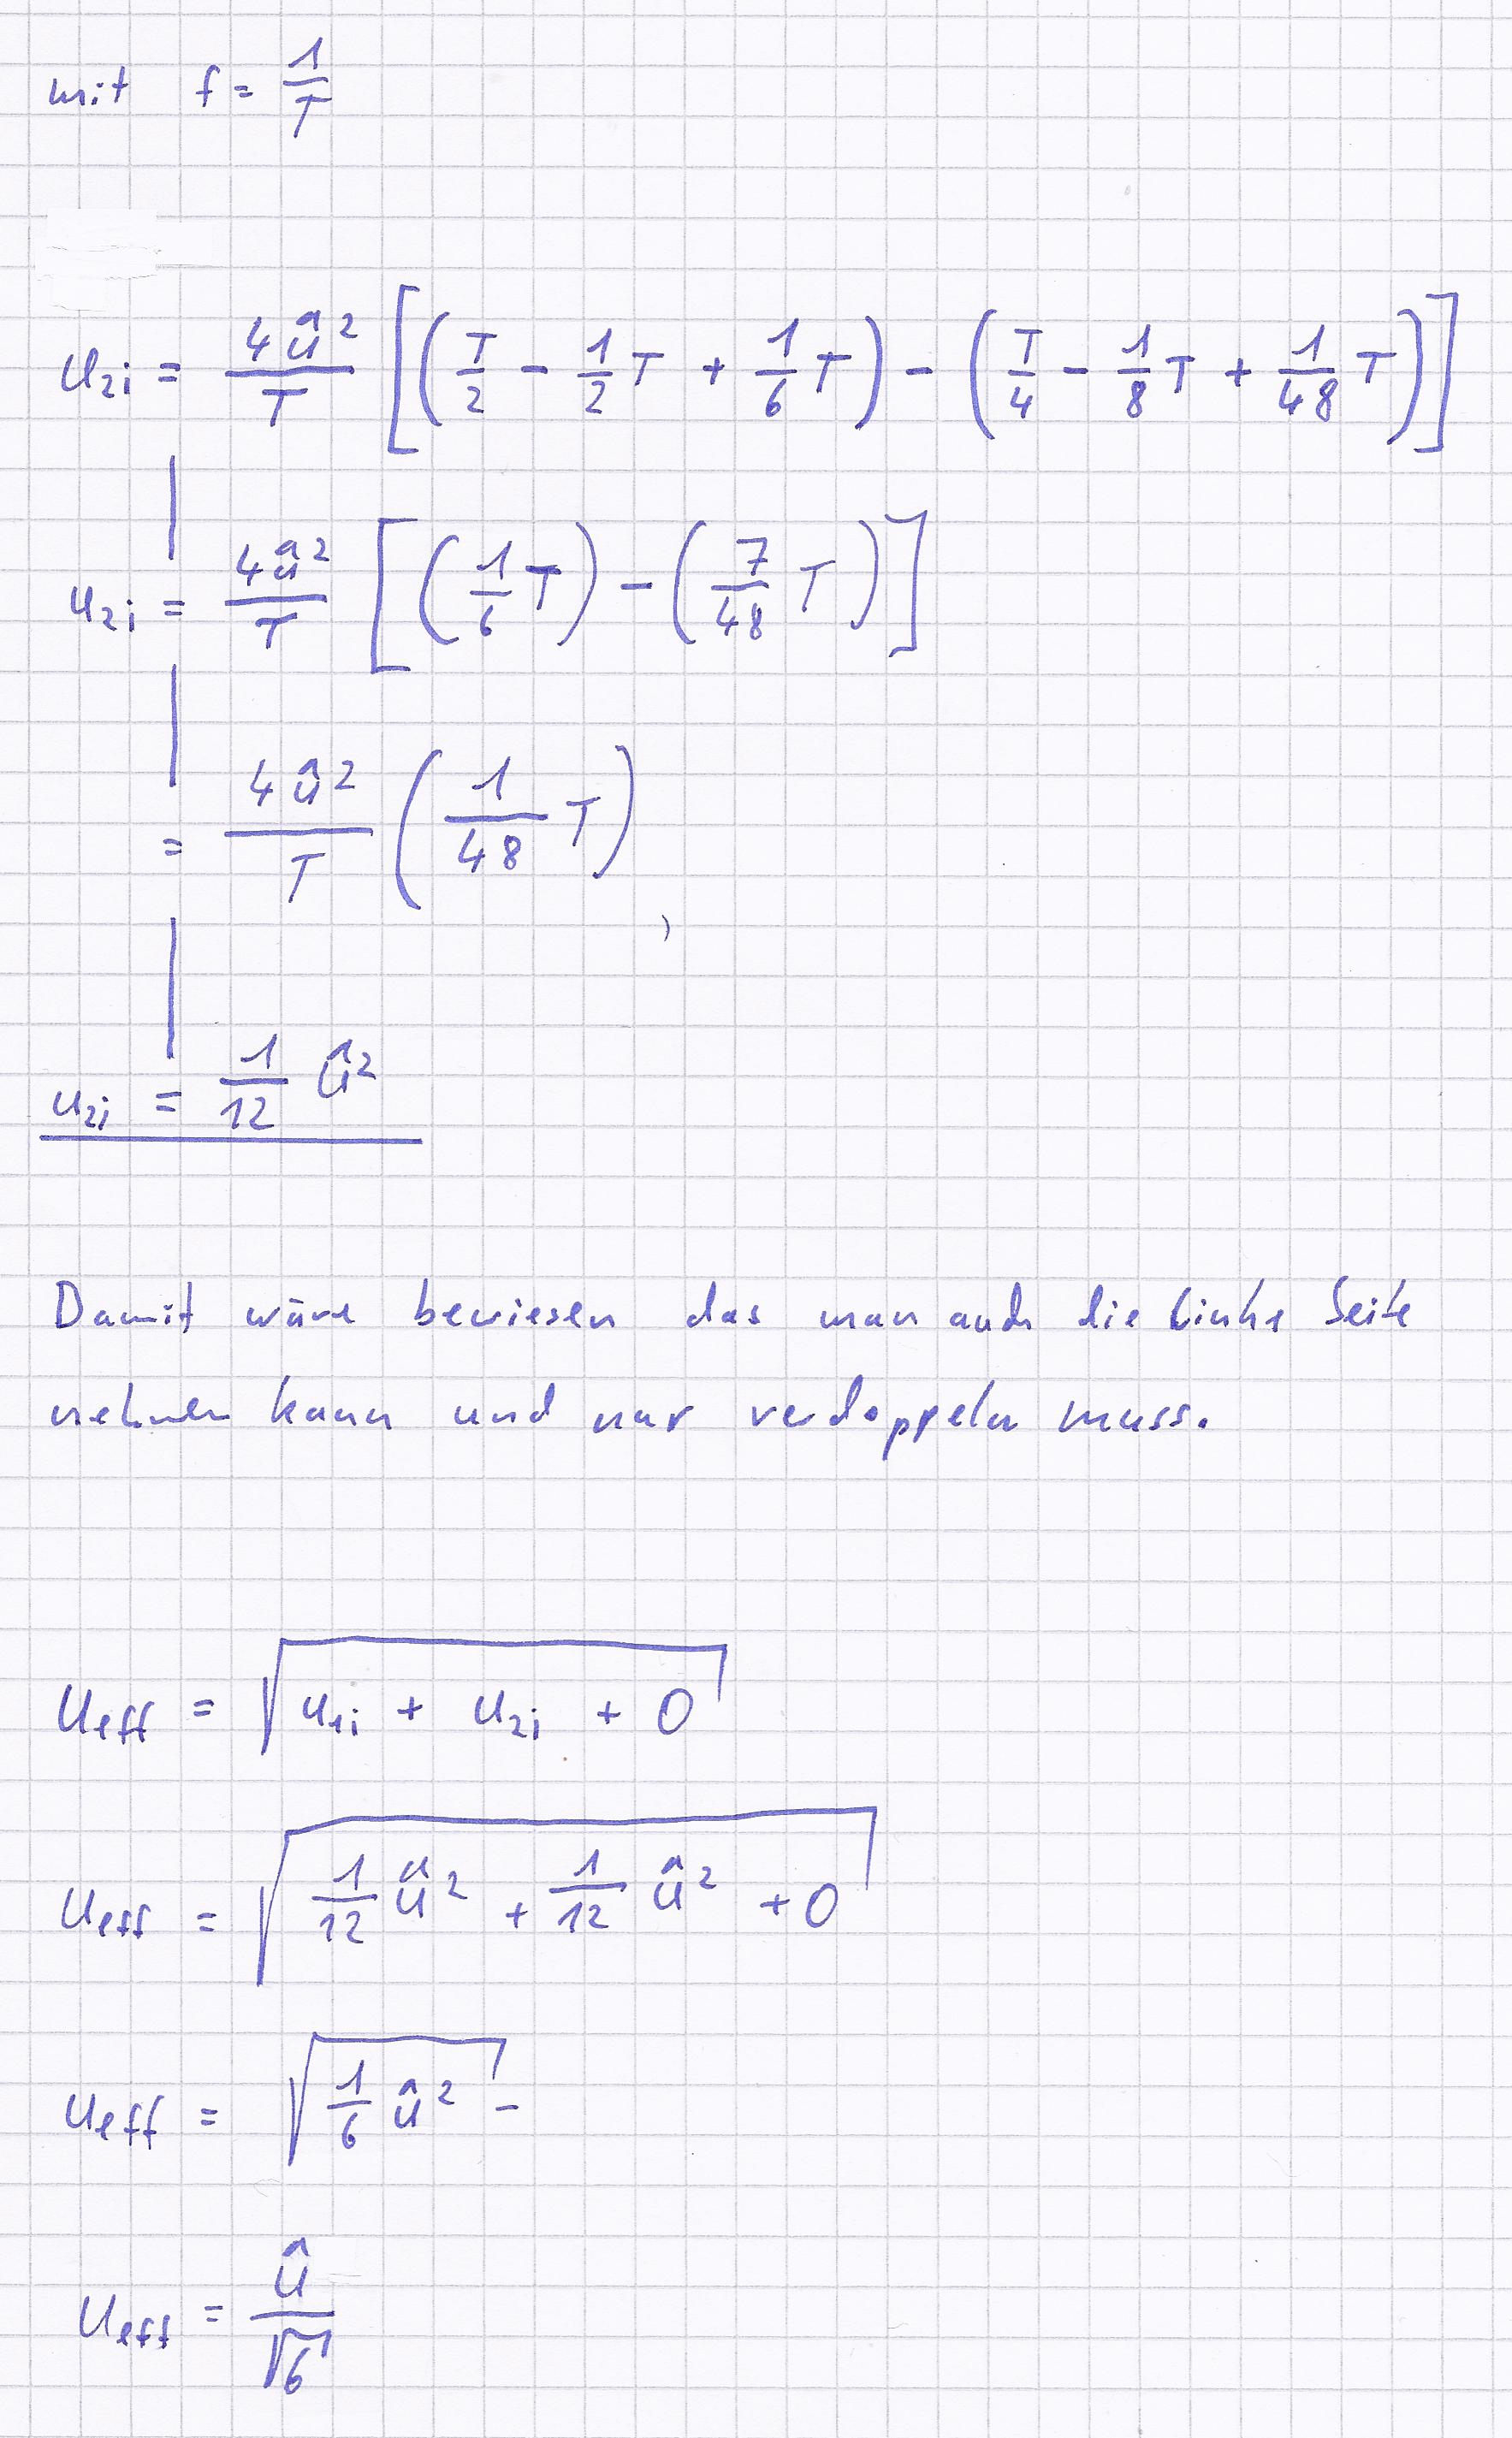 mit f = 1/T
u₂ᵢ = 4û²/T [(T/2 - 1/2 T + 1/6 T) - (T/4 - 1/8 T + 1/48 T)]
u₂ᵢ = 4û²/T [(1/6 T) - (7/48 T)]
= 4û²/T (1/48 T)
u₂ᵢ = 1/12 û²
Damit wäre bewiesen das man auch die linke Seite
nehmen kann und nur verdoppeln muss.
Ueff = √(u₁ᵢ + u₂ᵢ + 0)
Ueff = √(1/12 û² + 1/12 û² + 0)
Ueff = √(1/6 û²)
Ueff = û/√6